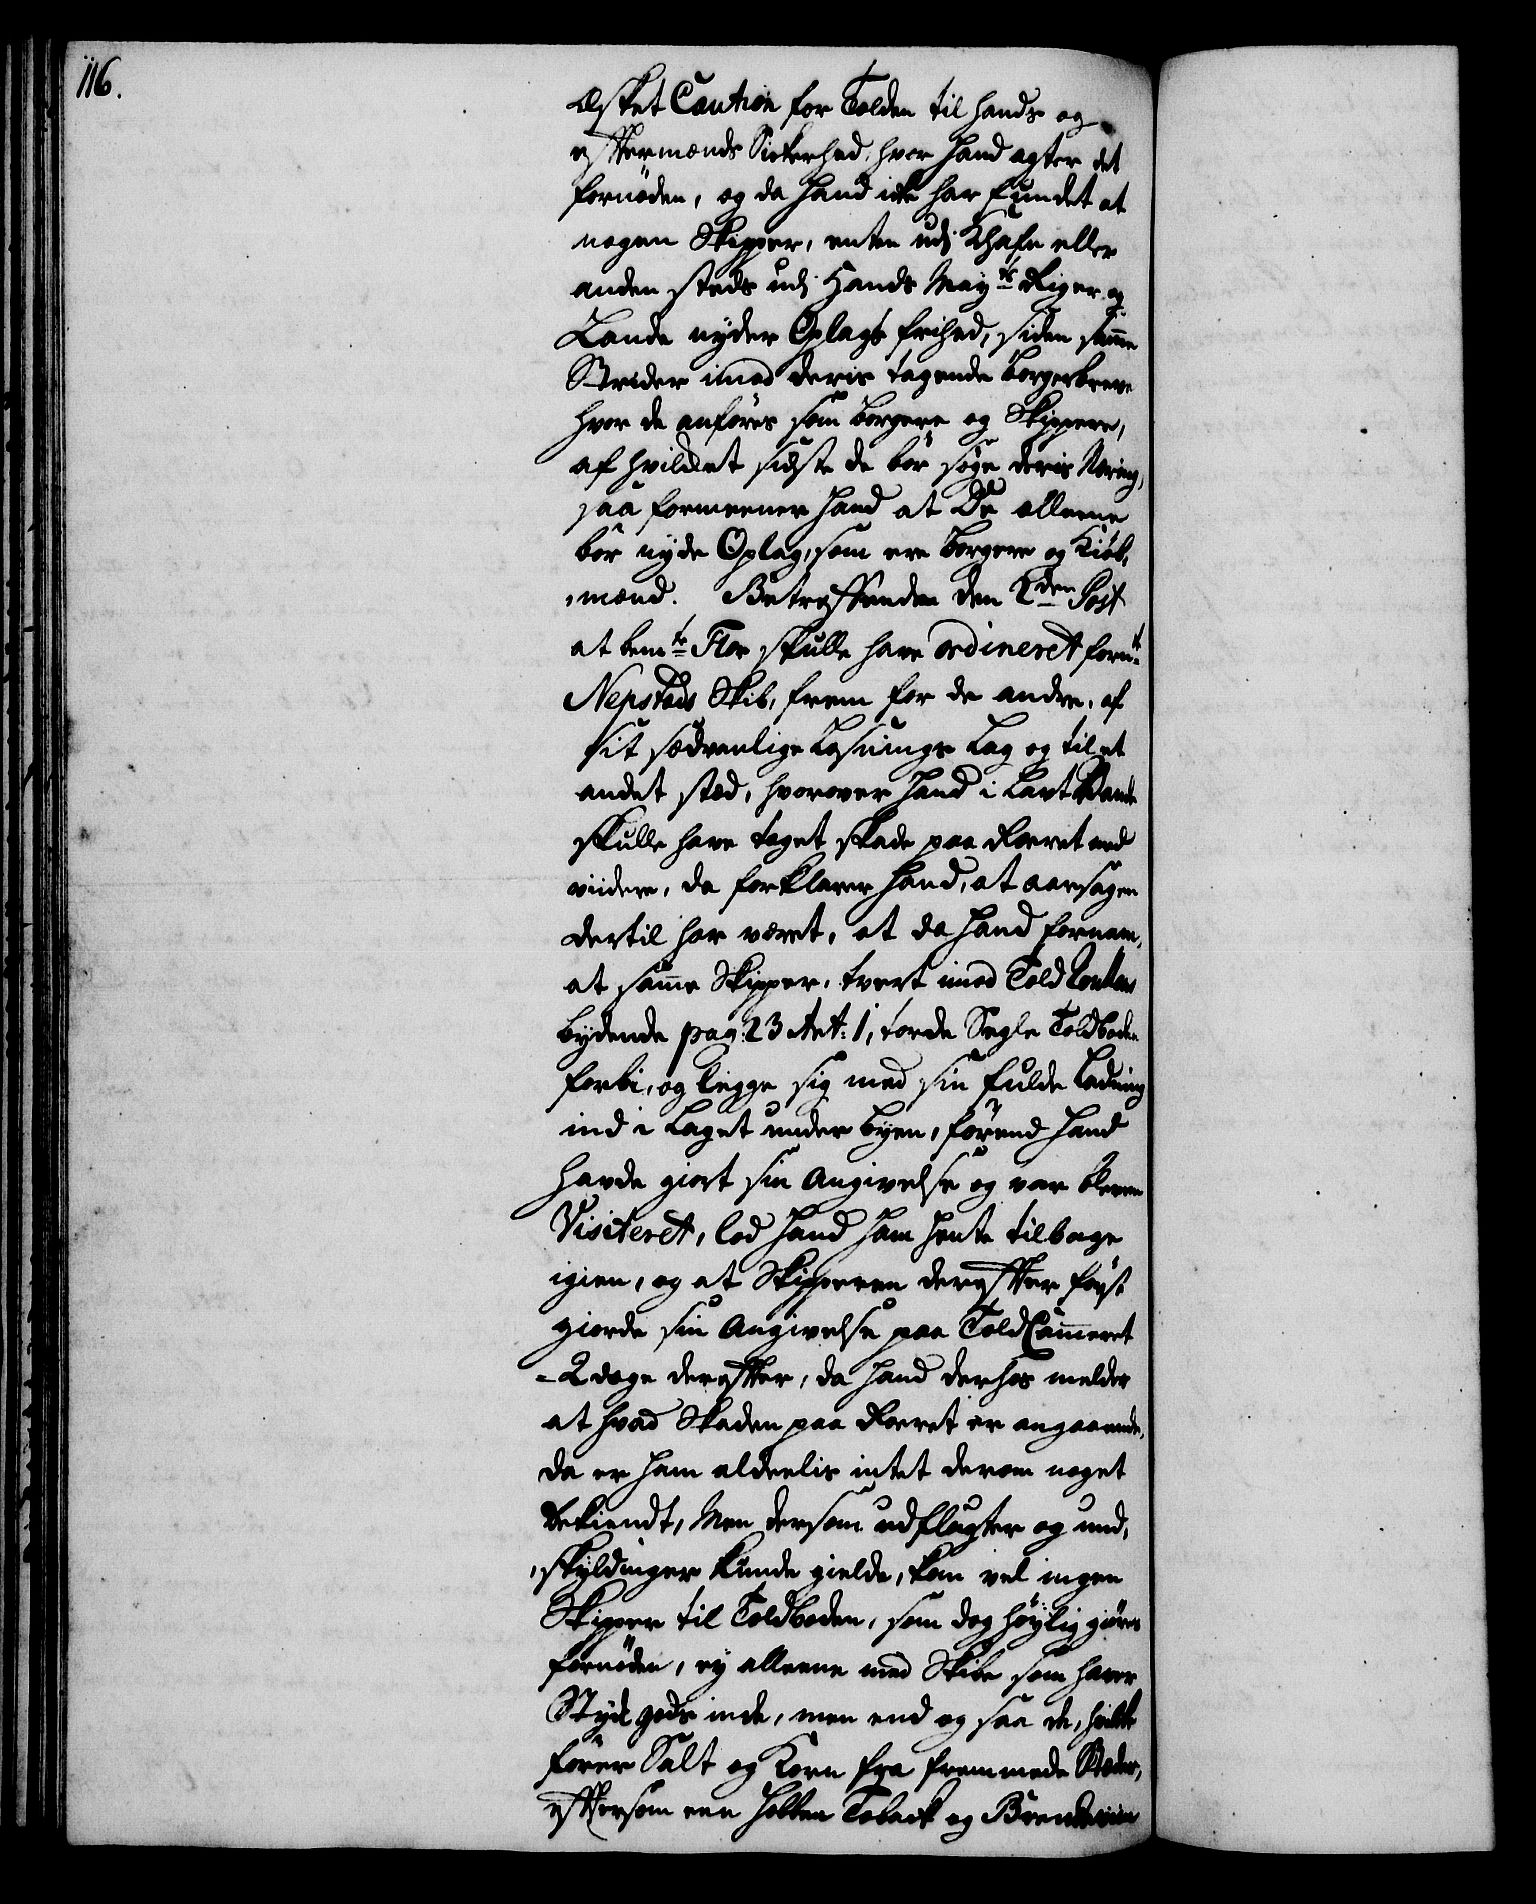 116.
Æsket Caution for Tolden til hands og
eftermænds Sickerhed, hvor hand agter det
fornöden, og da hand icke har fundet at
nogen Skipper, enten udj Khafn eller
anden steds udj Hands Mayts Riger og
Lande nyder Oplags frihed, siden samme
Strider imod deris tagende borgerbreve
hvor de anföres som borgere og Skippere,
af hvilcket sidste de bör söge deris Næring,
saa formeener hand at De alleene
bör nyde Oplag, som ere borgere og Kiöb,
,mænd. Betreffende den 2den Post
at bemte Flor skulle have ordineret fornt
Nepstads Skib, frem for de andre, af
sit sædvanlige Losnings Lag og til et
andet stæd, hvorover hand i Lavt Vande
skulle have taget skade paa Roeret med
viidere, da forklarer hand, at aarsagen
dertil har været, at da hand fornam,
at samme Skipper, tvert imod Told Rollens
bydende pag: 23 Art: 1, torde Segle Toldboden
forbi, og legge sig med sin fulde Ladning
ind i Laget under byen, förend hand
havde giort sin Angivelse og var bleven
Visiteret, lod hand ham hente tilbage
igien, og at Skipperen derefter först
giorde sin Angivelse paa ToldCammeret
- 2 dage derefter, da hand derhos melder
at hvad Skaden paa Roeret er angaaende,
da er ham alderlis intet derom noget
bekiendt, Men dersom udflugter og und,
,skyldinger kunde gielde, kom vel ingen
Skipper til Toldboden, som dog höylig giöres
fornöden, ey alleene med Skibe som haver
Styck gods inde, men end og saa de, hvilcke
förer Salt og Korn fra fremmede Stæder,
eftersom een hoben Toback og Brendeviin